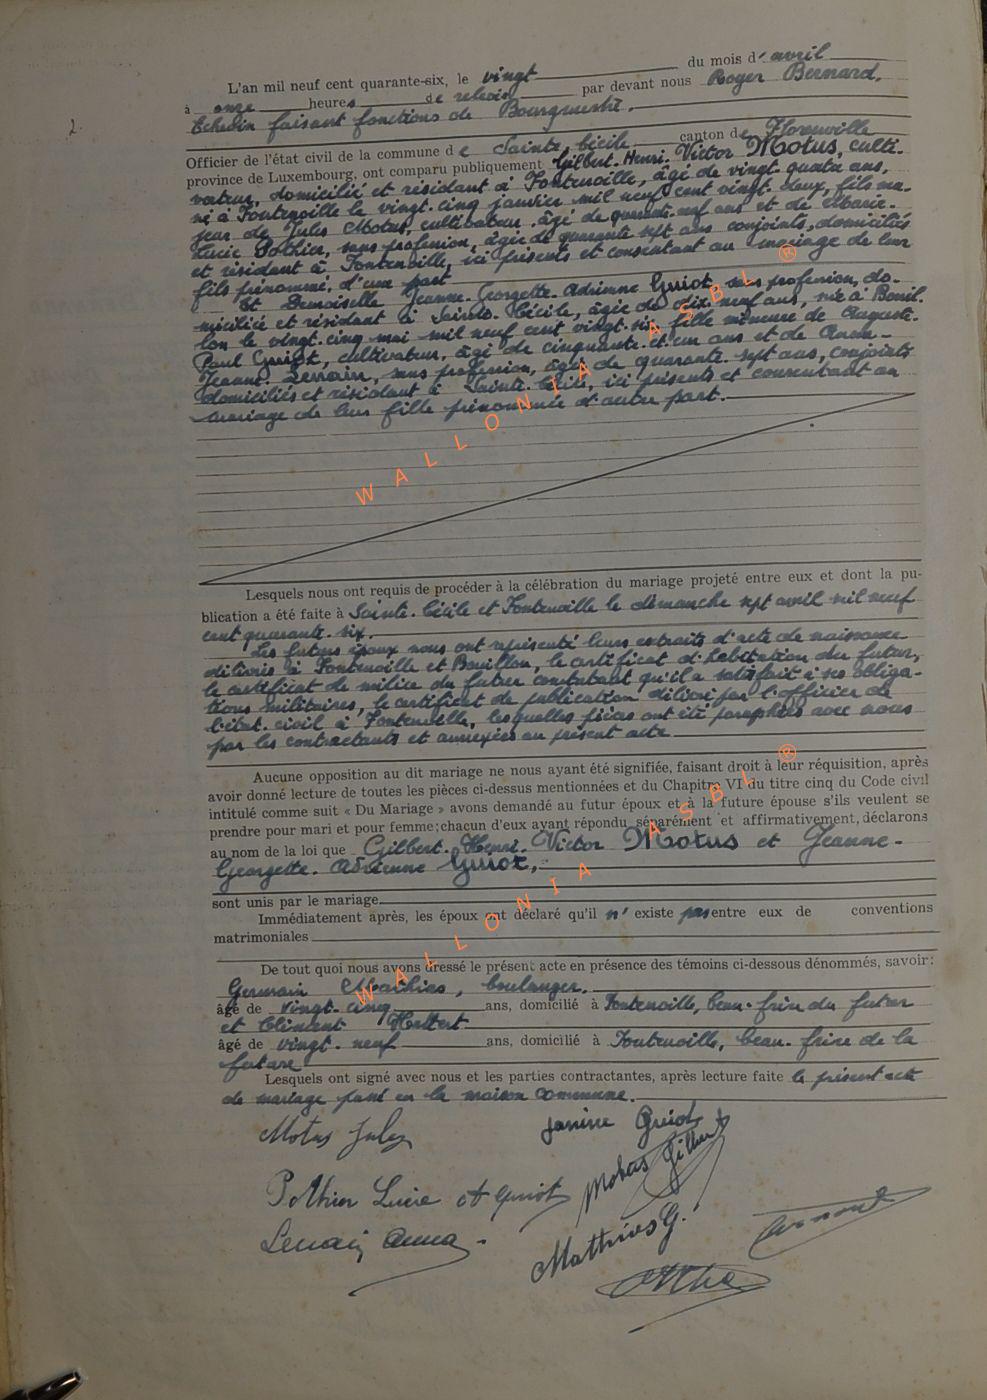 2.
L'an mil neuf cent quarante-six, le vingt du mois d'avril
à onze heures de relevée par devant nous Roger Bernard,
Echevin faisant fonctions de Bourgmestre.
Officier de l'état civil de la commune de Sainte-Cécile, canton de Florenville
province de Luxembourg, ont comparu publiquement Gilbert-Henri-Victor Motus, culti-
vateur, domicilié et résidant à Fontenoille, âgé de vingt-quatre ans,
né à Fontenoille le vingt-cinq janvier mil neuf cent vingt-deux, fils ma-
jeur de Jules Motus, cultivateur, âgé de quarante-neuf ans et de Marie-
Lucie Pothier, sans profession, âgée de quarante sept ans, conjoints, domiciliés
et résidant à Fontenoille, ici présents et consentant au mariage de leur
fils prénommé, d'une part
Et Demoiselle Jeanne-Georgette-Adrienne Guiot, sans profession, do-
micilié et résidant à Sainte-Cécile, âgée de dix-neuf ans, née à Bouil-
lon le vingt-cinq mai mil neuf cent vingt-six, fille mineure de Auguste-
Paul Guiot, cultivateur, âgé de cinquante-et-un ans et de Anna-
Jeanne Lenain, sans profession, âgée de quarante-sept ans, conjoints
domiciliés et résidant à Sainte-Cécile, ici présents et consentant au
mariage de leur fille prénommée d'autre part.
Lesquels nous ont requis de procéder à la célébration du mariage projeté entre eux et dont la pu-
blication a été faite à Sainte-Cécile et Fontenoille le dimanche sept avril mil neuf
cent quarante-six.
Les futurs époux nous ont représenté leurs extraits d'acte de naissance
délivrés à Fontenoille et Bouillon, le certificat d'habitation du futur,
le certificat de milice du futur constatant qu'il a satisfait à ses obliga-
tions militaires, le certificat de publication délivré par l'officier de
l'état-civil à Fontenoille, lesquelles pièces ont été paraphées avec nous
par les contractants et annexées au présent acte
Aucune opposition au dit mariage ne nous ayant été signifiée, faisant droit à leur réquisition, après
avoir donné lecture de toutes les pièces ci-dessus mentionnées et du Chapitre VI du titre cinq du Code civil
intitulé comme suit « Du Mariage » avons demandé au futur époux et à la future épouse s'ils veulent se
prendre pour mari et pour femme; chacun d'eux ayant répondu séparément et affirmativement, déclarons
au nom de la loi que Gilbert-Henri-Victor Motus et Jeanne-
Georgette-Adrienne Guiot,
sont unis par le mariage
Immédiatement après, les époux ont déclaré qu'il n'existe pas entre eux de conventions
matrimoniales
De tout quoi nous avons dressé le présent acte en présence des témoins ci-dessous dénommés, savoir:
Germain Mathias, boulanger,
âgé de vingt-cinq ans, domicilié à Fontenoille, beau-frère du futur
et Clément Herbert
âgé de vingt-neuf ans, domicilié à Fontenoille, beau-frère de la
future
Lesquels ont signé avec nous et les parties contractantes, après lecture faite le présent acte
de mariage passé en la maison commune.
Motus Jules
Janine Guiot
Pothier Lucie
A Guiot
Motus Gilbert
Lenain Anna
Matthias G.
WALLONIA ASBL ®
WALLONIA ASBL ®